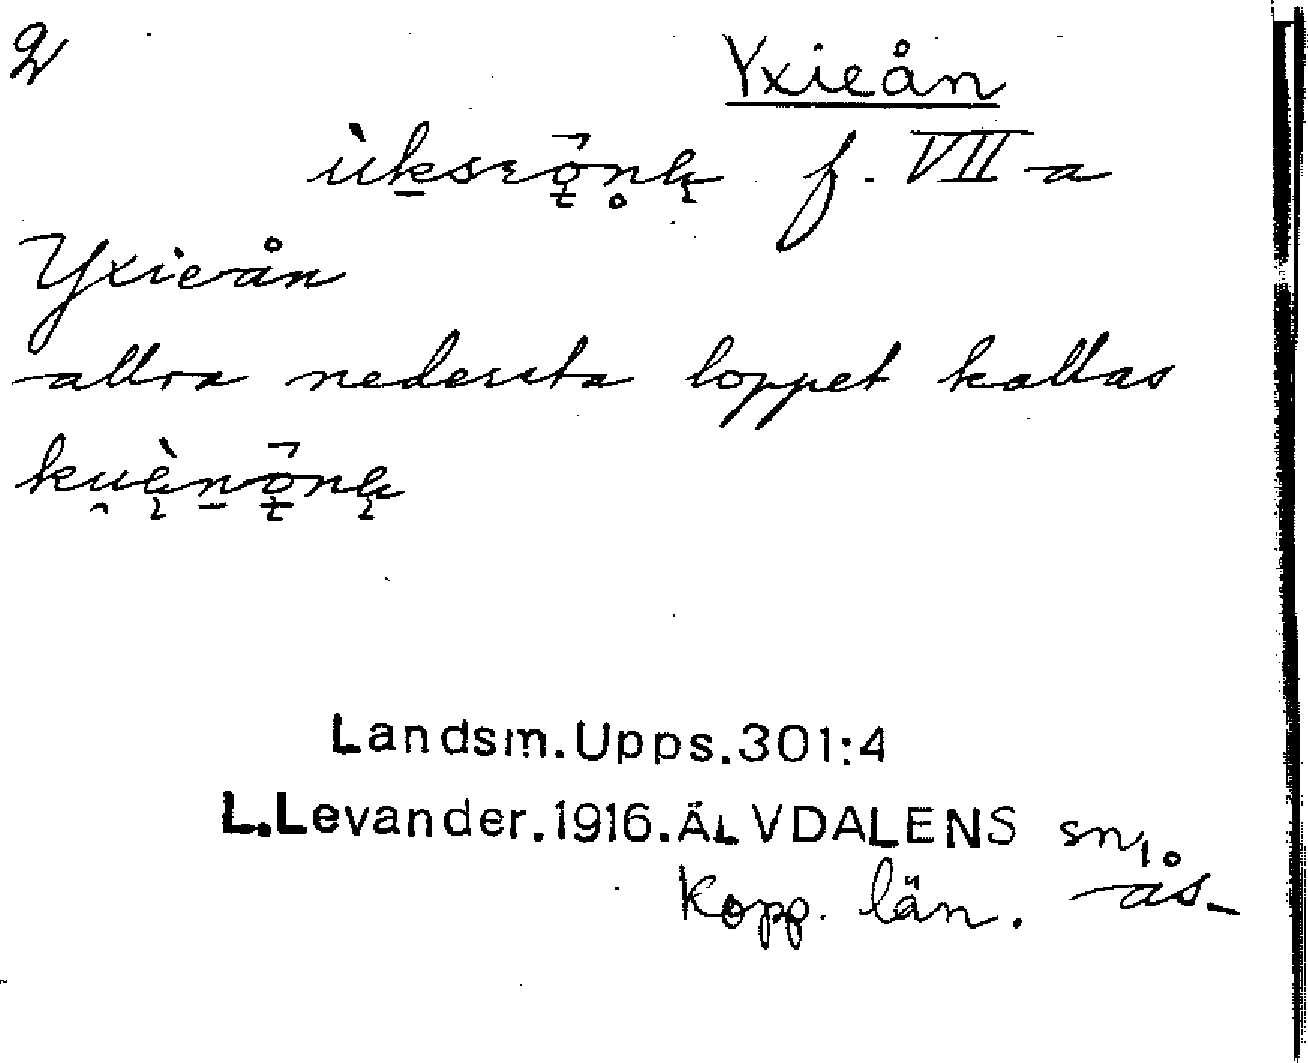 2
Yxieån
f. VII-a
Yxieån
allra nedersta loppet kallas
Landsm.Upps.301:4
L.Levander.1916.ÄLVDALENS sn,
Kopp. län. ås-